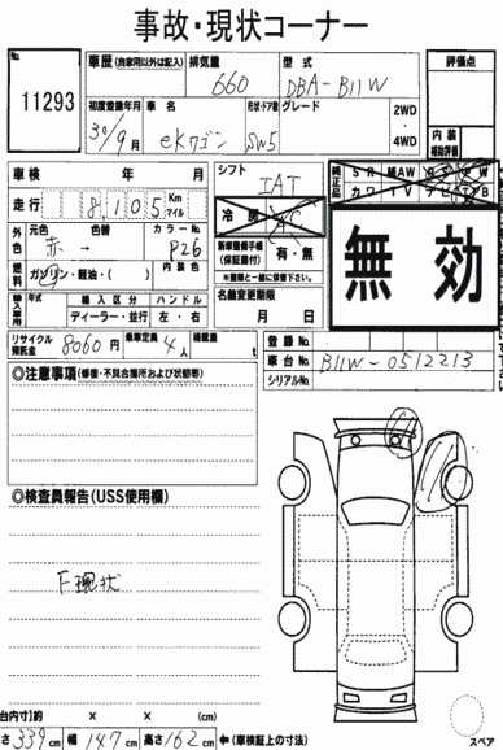 事故・現状コーナー
No. 11293
車歴 (自家用以外は記入) 排気量 660 型式 DBA-B11W 評価点
初度登録年月 30/9月 車名 eKワゴン 形状・ドア数 SW5 グレード 2WD ・ 4WD
内装 補助評価
車検 年 月 シフト IAT 純正品 SR 純AW PS PW
カワ TV ナビ エアB
走行 8,105 Km マイル 冷房
無効
外色 元色 赤 色替 - カラーNo P26 新車時保証書 (保証書付) 有・無
※書類と一緒に保管下さい。
燃料 ガソリン・軽油・( ) 内装色
名義変更期限 月 日
輸入車用 年式 輸入区分 ハンドル
ディーラー・並行 左・右
リサイクル預託金 8060円 乗車定員 4人 積載量 t
登録No.
車台No. B11W-0512213
シリアルNo.
◎注意事項 (修復・不具合箇所および状態等)
◎検査員報告 (USS使用欄)
F現状
荷台内寸 約 × × (cm)
長さ 339cm 幅 147cm 高さ 162cm (車検証上の寸法)
スペア